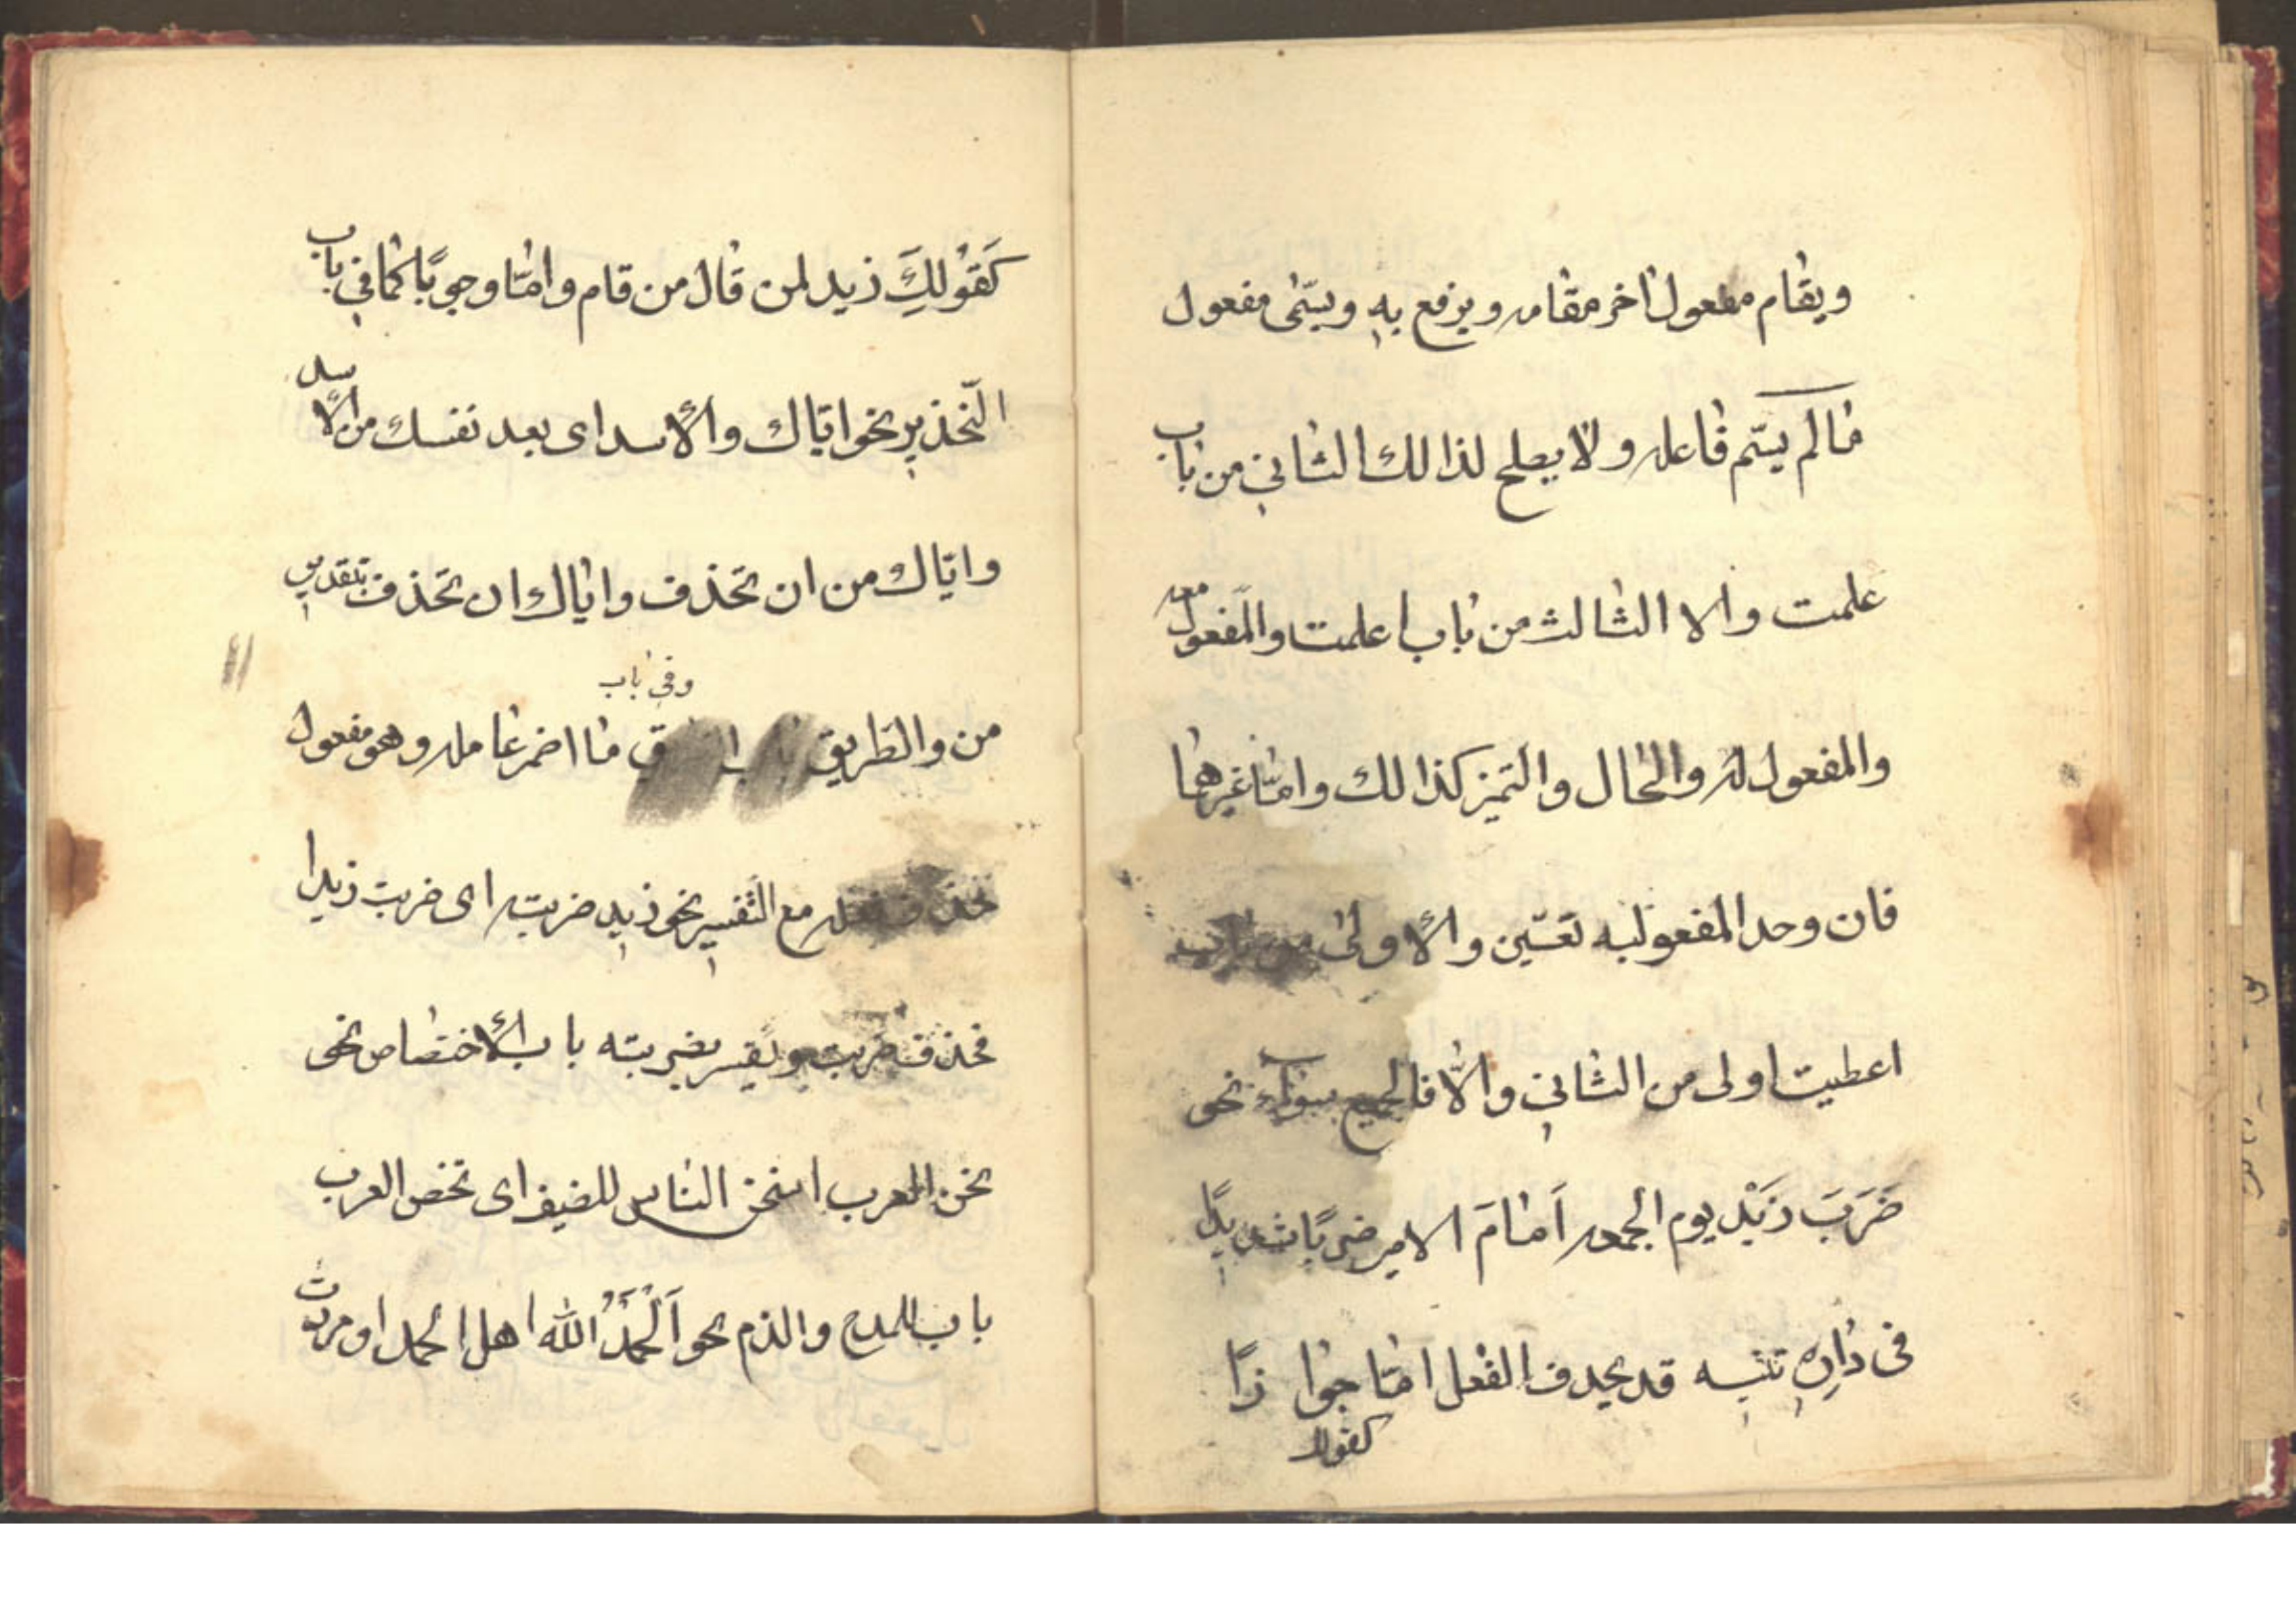 ويقام مفعول اخر مقامه ويرفع به ويسمّى مفعول
مالم يسّم فاعله ولا يصلح لذالك الثاني من باب
علمت والا الثالث من باب اعلمت والمفعول معه
والمفعول له والحال والتميز كذالك وامّا غيرهما
فان وحد المفعول به تعيّن والأولى من باب
اعطيت اولى من الثاني والّا فالجميع سواء نحو
ضَرَبَ زَيْد يوم الجمعه اَمامَ الامير ضربًا شديدًا
فى دارِهِ تنبيه قد يحدف الفعل امّا جوازًا
كقولك
كَقَوْلِكَ زيد لمن قال من قام وامّا وجوبًا كما في باب
التّحذير نحو ايّاك والأسد اى بعد نفسك من الأسد
وايّاك من ان تحذف واياك ان تحذف بتقديم
من والطريق
وفى باب
ما اضمر عامله وهو مفعول
حذف فعله مع التّفسير نحو زيد ضربته اى ضربت زيدا
فحذف ضربت ويفسر بضربته باب الأختصاص نحو
نحن العرب اسخن الناس للضيف اى تخص العرب
باب للمدح والذم نحو اَلْحَمْدُ الله اهل الحمد او مررت